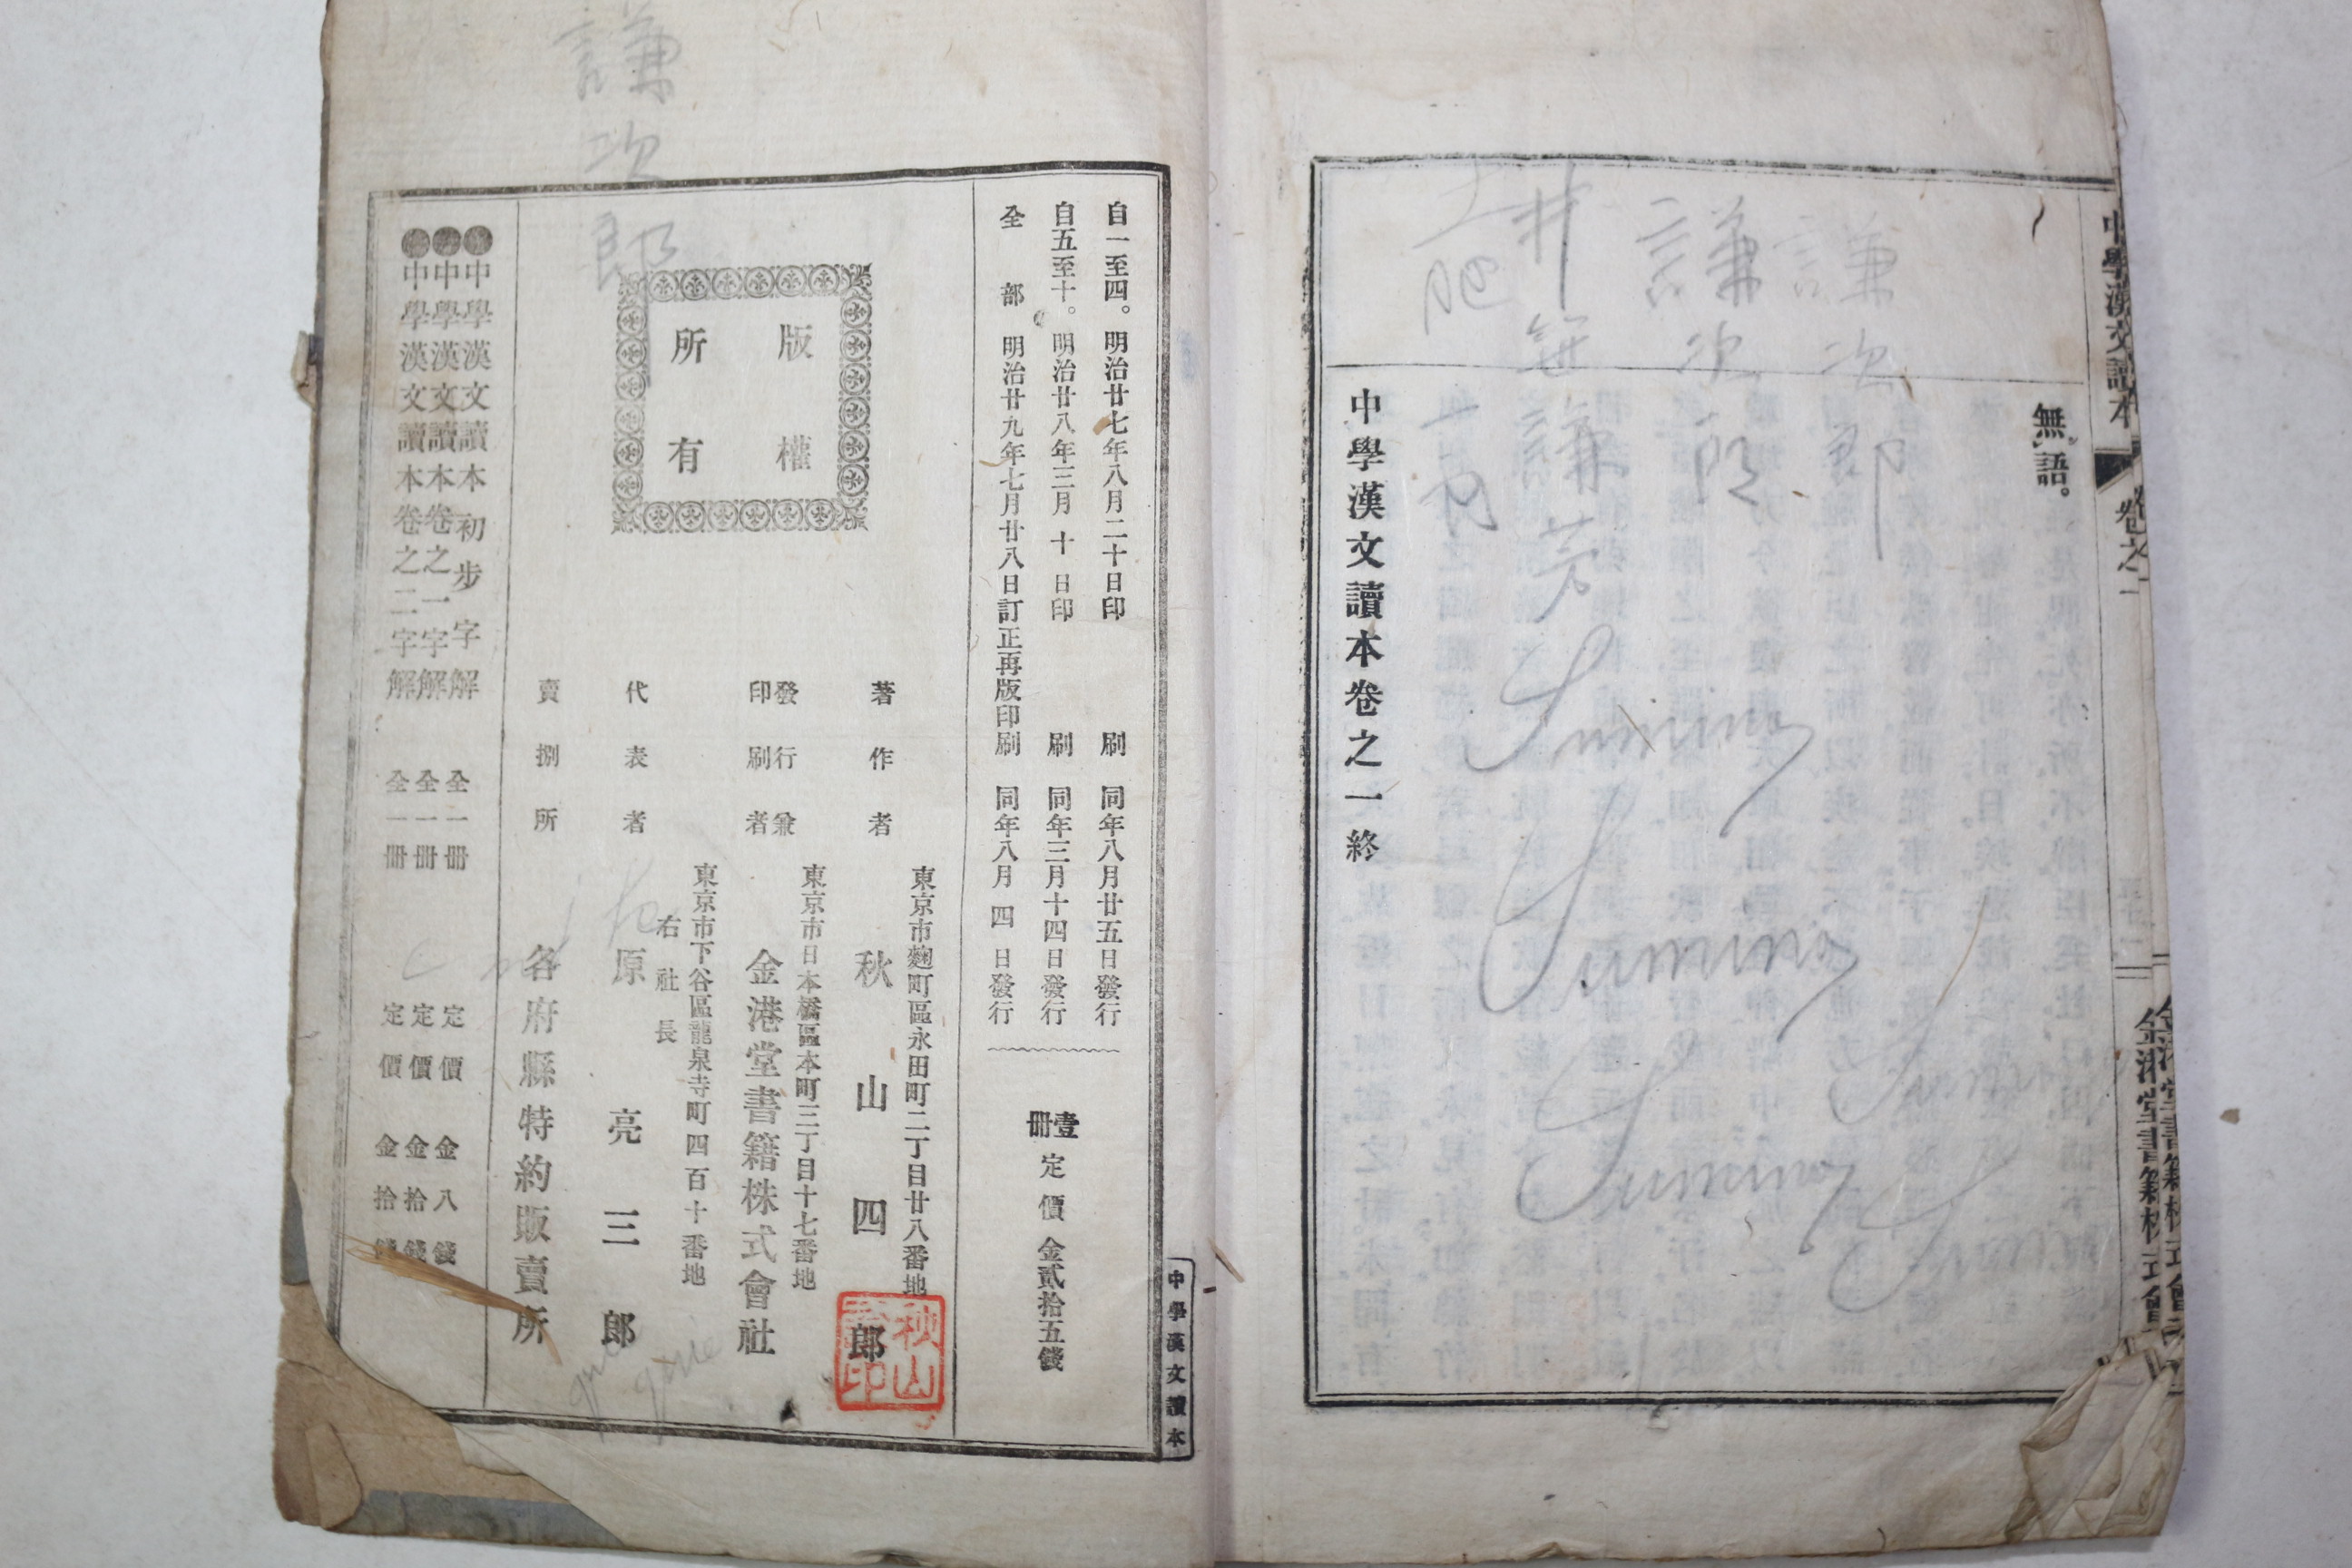 中學漢文讀本
卷之一
金港堂書籍株式會社
無語。
中學漢文讀本卷之一終
謙次郎
謙次郎
謙次郎
自一至四。明治廿七年八月二十日印刷 同年八月廿五日發行
自五至十。明治廿八年三月十日印刷 同年三月十四日發行
全部 明治廿九年七月廿八日訂正再版印刷 同年八月四日發行
壹冊定價金貳拾五錢
版權
所有
著作者
東京市麴町區永田町二丁目廿八番地
秋山四郎
發行兼
印刷者
東京市日本橋區本町三丁目十七番地
金港堂書籍株式會社
東京市下谷區龍泉寺町四百十番地
右社長
代表者 原亮三郎
賣捌所 各府縣特約販賣所
中學漢文讀本初步字解 全一冊 定價 金八錢
中學漢文讀本卷之一字解 全一冊 定價 金拾錢
中學漢文讀本卷之二字解 全一冊 定價 金拾錢
中學漢文讀本
秋山